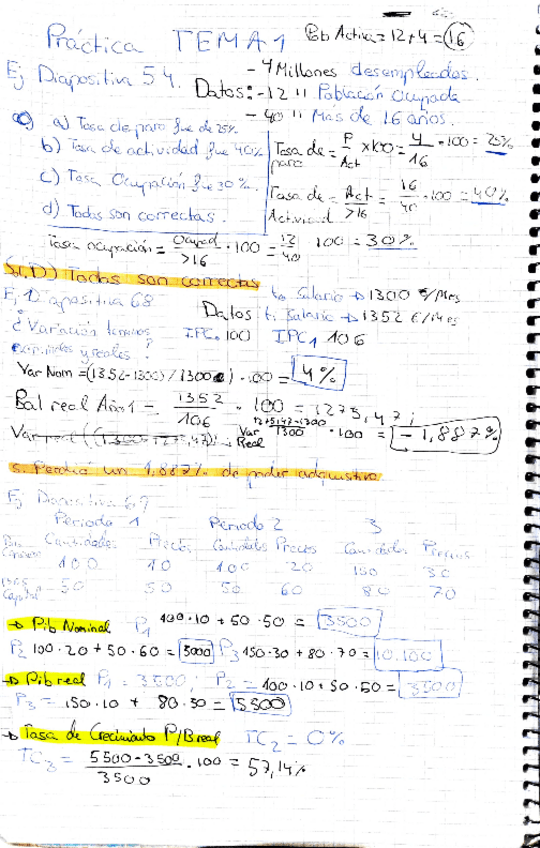 Práctica TEMA 1 Pob Activa = 12+4 = 16
Ej Diapositiva 54. Datos: - 4 Millones desempleados.
- 12 " Población Ocupada
- 40 " Mas de 16 años.
a) Tasa de paro fue de 25%
b) Tasa de actividad fue 40%
c) Tasa Ocupación fue 30%.
d) Todas son correctas.
Tasa de paro = P/Act x100 = 4/16 · 100 = 25%
Tasa de Actividad = Act/>16 = 16/40 · 100 = 40%
Tasa ocupación = Ocupad/>16 · 100 = 12/40 100 = 30%
S. (D) Todas son correctas
Ej Diapositiva 68 Datos t0 Salario → 1300 €/Mes
t1 Salario → 1352 €/Mes
¿Variación terminos nominales y reales? IPC0 100 IPC1 106
Var Nom = (1352-1300)/1300 · 100 = 4%
Sal real Año 1 = 1352/106 · 100 = 1275,47;
Var Real 1275,47-1300/1300 · 100 = -1,887%
S. Perdió un 1,887% de poder adquisitivo
Ej Diapositiva 67
Periodo 1 Periodo 2 3
Cantidades Precios Cantidades Precios Cantidades Precios
Bie Consumo 100 10 100 20 150 30
Bies Capital 50 50 50 60 80 70
→ Pib Nominal P1 100·10 + 50·50 = 3500
P2 100·20 + 50·60 = 5000 P3 150·30 + 80·70 = 10.100
→ Pib real P1 = 3500; P2 = 100·10 + 50·50 = 3500
P3 = 150·10 + 80·50 = 5500
→ Tasa de Crecimiento PIB real TC2 = 0%
TC3 = 5500-3500/3500 · 100 = 57,14%